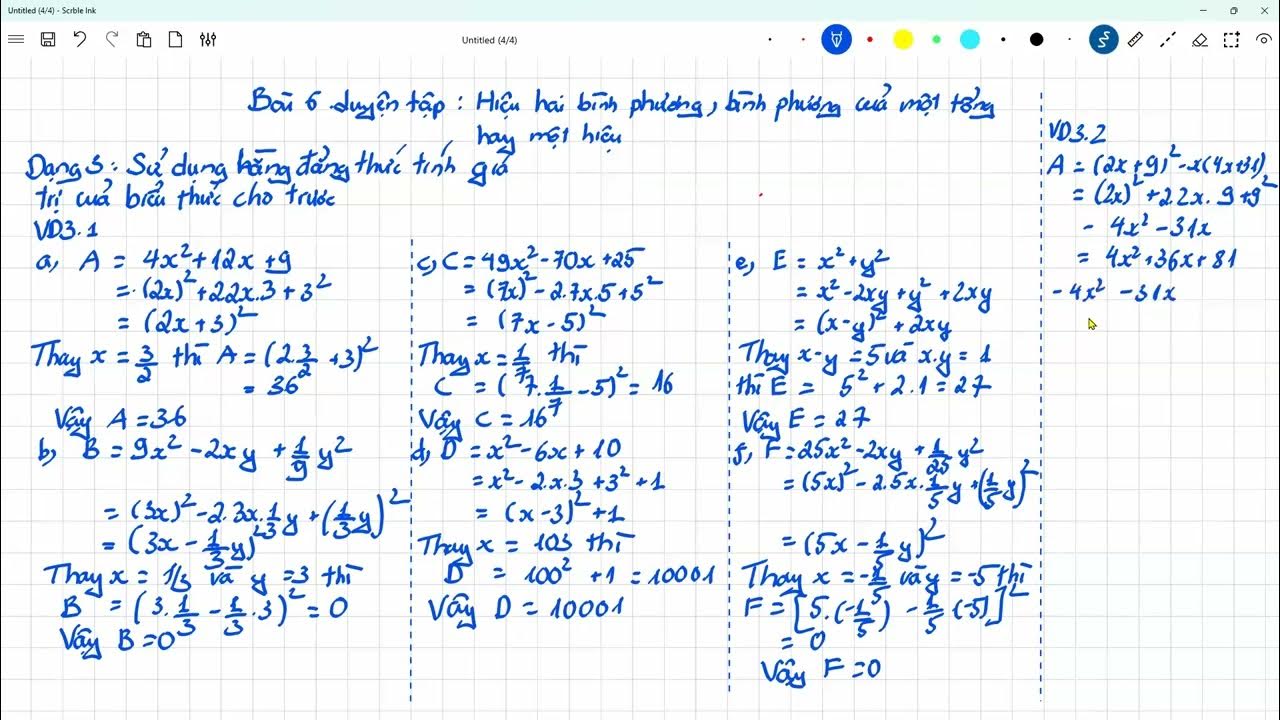 Untitled (4/4) - Scrble Ink
Untitled (4/4)
Bài 6 Luyện tập : Hiệu hai bình phương, bình phương của một tổng
hay một hiệu
Dạng 3 : Sử dụng hằng đẳng thức tính giá
trị của biểu thức cho trước
VD3.1
a, A = 4x² + 12x + 9
= (2x)² + 2.2x.3 + 3²
= (2x + 3)²
Thay x = 3/2 thì A = (2.3/2 + 3)²
= 36
Vậy A = 36
b, B = 9x² - 2xy + 1/9 y²
= (3x)² - 2.3x.1/3 y + (1/3 y)²
= (3x - 1/3 y)²
Thay x = 1/3 và y = 3 thì
B = (3.1/3 - 1/3.3)² = 0
Vậy B = 0
c, C = 49x² - 70x + 25
= (7x)² - 2.7x.5 + 5²
= (7x - 5)²
Thay x = 1/7 thì
C = (7.1/7 - 5)² = 16
Vậy C = 16
d, D = x² - 6x + 10
= x² - 2.x.3 + 3² + 1
= (x - 3)² + 1
Thay x = 103 thì
D = 100² + 1 = 10001
Vậy D = 10001
e, E = x² + y²
= x² - 2xy + y² + 2xy
= (x - y)² + 2xy
Thay x - y = 5 và x.y = 1
thì E = 5² + 2.1 = 27
Vậy E = 27
f, F = 25x² - 2xy + 1/25 y²
= (5x)² - 2.5x.1/5 y + (1/5 y)²
= (5x - 1/5 y)²
Thay x = -1/5 và y = -5 thì
F = [5.(-1/5) - 1/5 (-5)]²
= 0
Vậy F = 0
VD3.2
A = (2x + 9)² - x(4x + 31)
= (2x)² + 2.2x.9 + 9²
- 4x² - 31x
= 4x² + 36x + 81
- 4x² - 31x